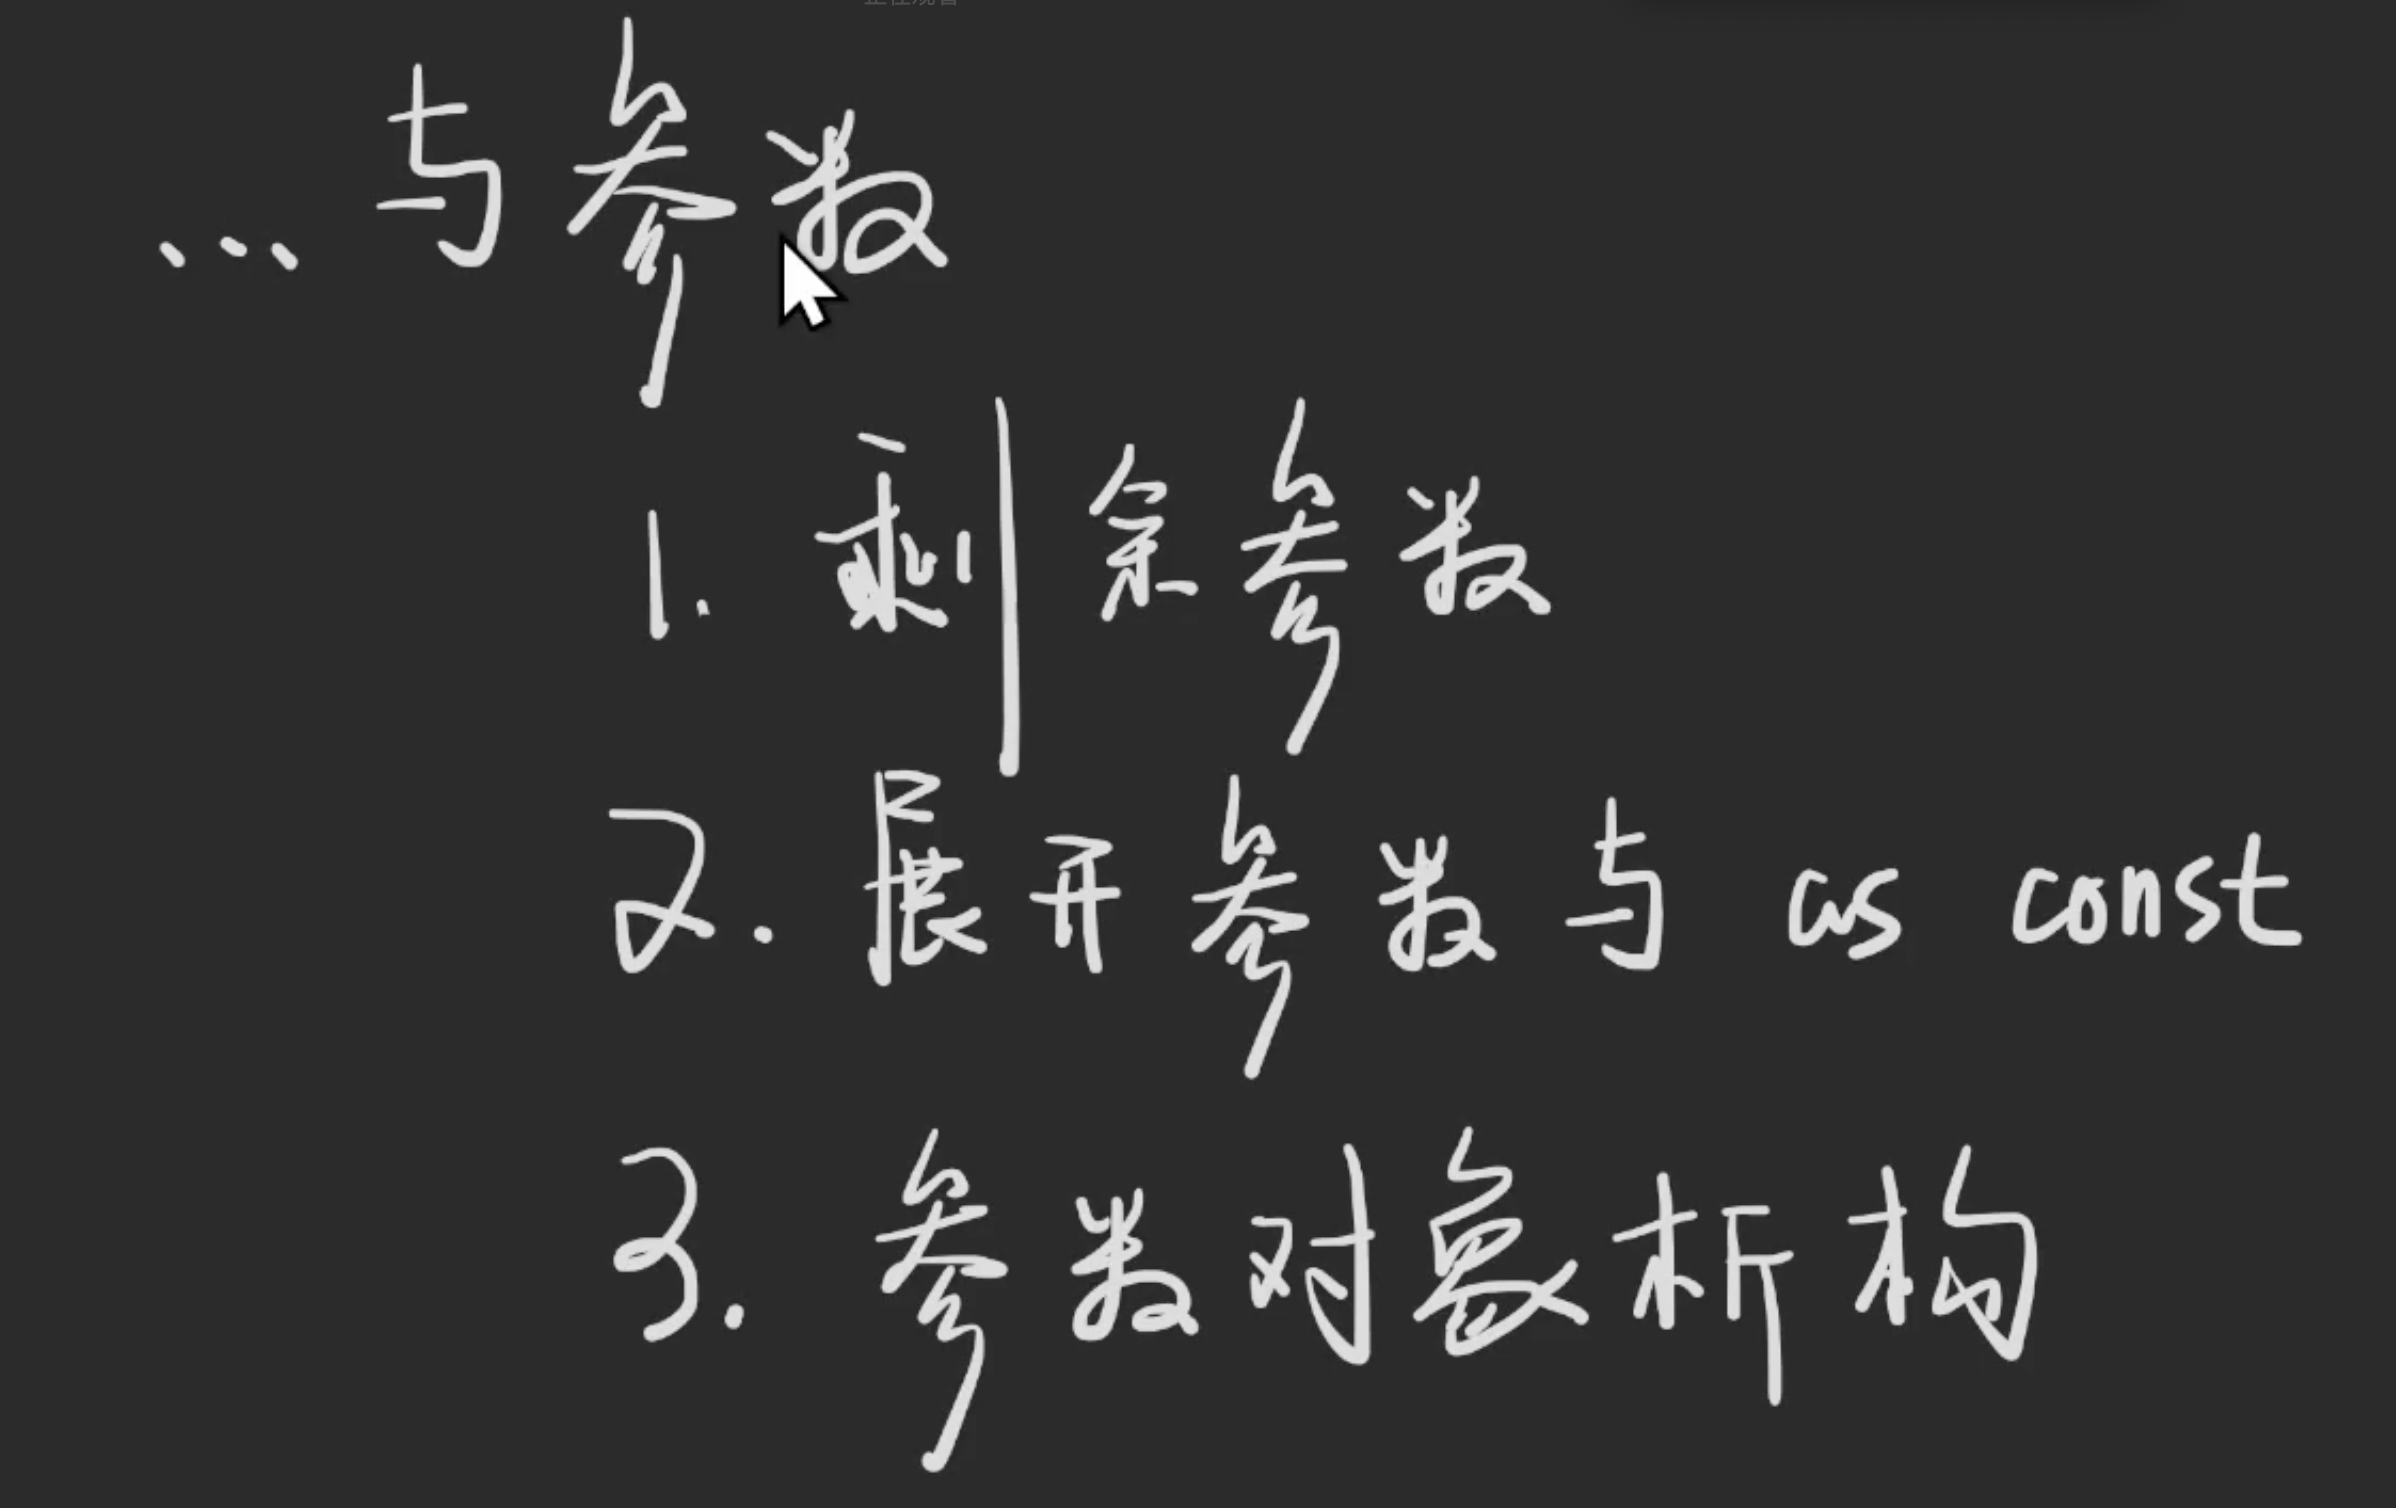 ... 与参数
1. 剩余参数
2. 展开参数与 as const
3. 参数对象析构